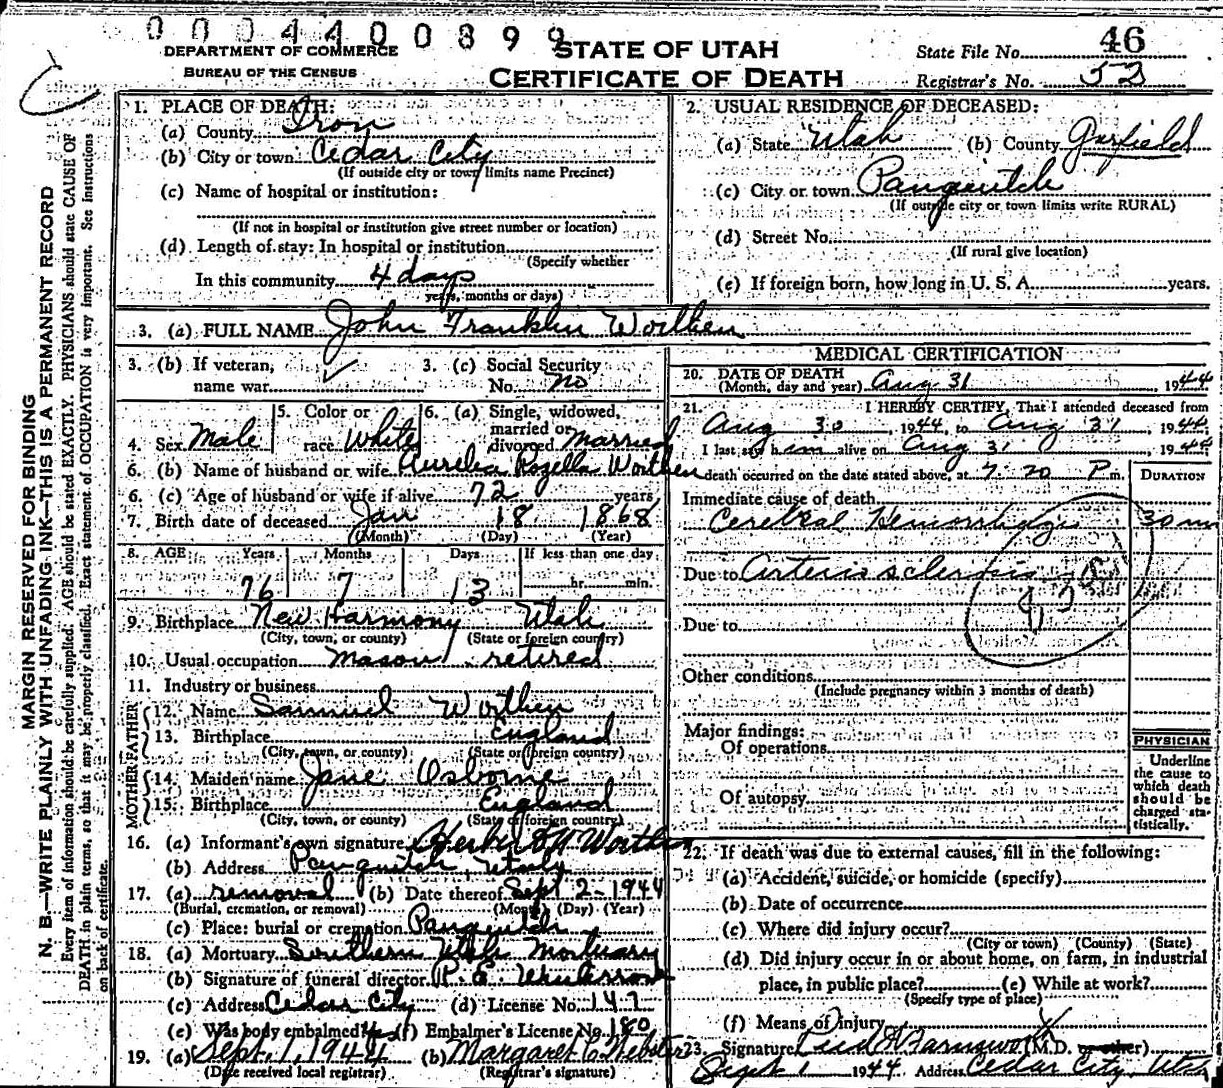 0004400899
DEPARTMENT OF COMMERCE
BUREAU OF THE CENSUS
STATE OF UTAH
CERTIFICATE OF DEATH
State File No. 46
Registrar's No. 52
MARGIN RESERVED FOR BINDING
N. B.—WRITE PLAINLY WITH UNFADING INK—THIS IS A PERMANENT RECORD
Every item of information should be carefully supplied. AGE should be stated EXACTLY. PHYSICIANS should state CAUSE OF
DEATH in plain terms, so that it may be properly classified. Exact statement of OCCUPATION is very important. See Instructions
on back of certificate.
1. PLACE OF DEATH:
(a) County Iron
(b) City or town Cedar City
(If outside city or town limits name Precinct)
(c) Name of hospital or institution:
(If not in hospital or institution give street number or location)
(d) Length of stay: In hospital or institution
(Specify whether
In this community 4 days
years, months or days)
2. USUAL RESIDENCE OF DECEASED:
(a) State Utah (b) County Garfield
(c) City or town Panguitch
(If outside city or town limits write RURAL)
(d) Street No.
(If rural give location)
(e) If foreign born, how long in U. S. A. years.
3. (a) FULL NAME John Franklin Worthen
3. (b) If veteran, name war ✓
3. (c) Social Security No. no
4. Sex Male
5. Color or race White
6. (a) Single, widowed, married or divorced married
6. (b) Name of husband or wife Aurelia Rozella Worthen
6. (c) Age of husband or wife if alive 72 years
7. Birth date of deceased Jan 18 1868
(Month) (Day) (Year)
8. AGE: Years Months Days If less than one day
76 7 13 hr. min.
9. Birthplace New Harmony Utah
(City, town, or county) (State or foreign country)
10. Usual occupation Mason retired
11. Industry or business
FATHER
12. Name Samuel Worthen
13. Birthplace England
(City, town, or county) (State or foreign country)
MOTHER
14. Maiden name Jane Osborne
15. Birthplace England
(City, town, or county) (State or foreign country)
16. (a) Informant's own signature Worthen
(b) Address Panguitch, Utah
17. (a) removal (b) Date thereof Sept 2-1944
(Burial, cremation, or removal) (Month) (Day) (Year)
(c) Place: burial or cremation Panguitch
18. (a) Mortuary Southern Utah Mortuary
(b) Signature of funeral director
(c) Address Cedar City (d) License No. 147
(e) Was body embalmed? (f) Embalmer's License No. 180
19. (a) Sept. 1, 1944 (b) Margaret C Webster
(Date received local registrar) (Registrar's signature)
MEDICAL CERTIFICATION
20. DATE OF DEATH
(Month, day and year) Aug 31, 1944
21. I HEREBY CERTIFY, That I attended deceased from
Aug 30, 1944, to Aug 31, 1944
I last saw him alive on Aug 31, 1944
death occurred on the date stated above, at 7:20 P m.
DURATION
Immediate cause of death
Cerebral Hemorrhage 30 m
Due to Arteriosclerosis
Due to
Other conditions
(Include pregnancy within 3 months of death)
Major findings:
Of operations
Of autopsy
PHYSICIAN
Underline
the cause to
which death
should be
charged sta-
tistically.
22. If death was due to external causes, fill in the following:
(a) Accident, suicide, or homicide (specify)
(b) Date of occurrence
(c) Where did injury occur?
(City or town) (County) (State)
(d) Did injury occur in or about home, on farm, in industrial
place, in public place? (e) While at work?
(Specify type of place)
(f) Means of injury
23. Signature Farnsworth (M.D. or other)
Sept 1 1944 Address Cedar City, Utah